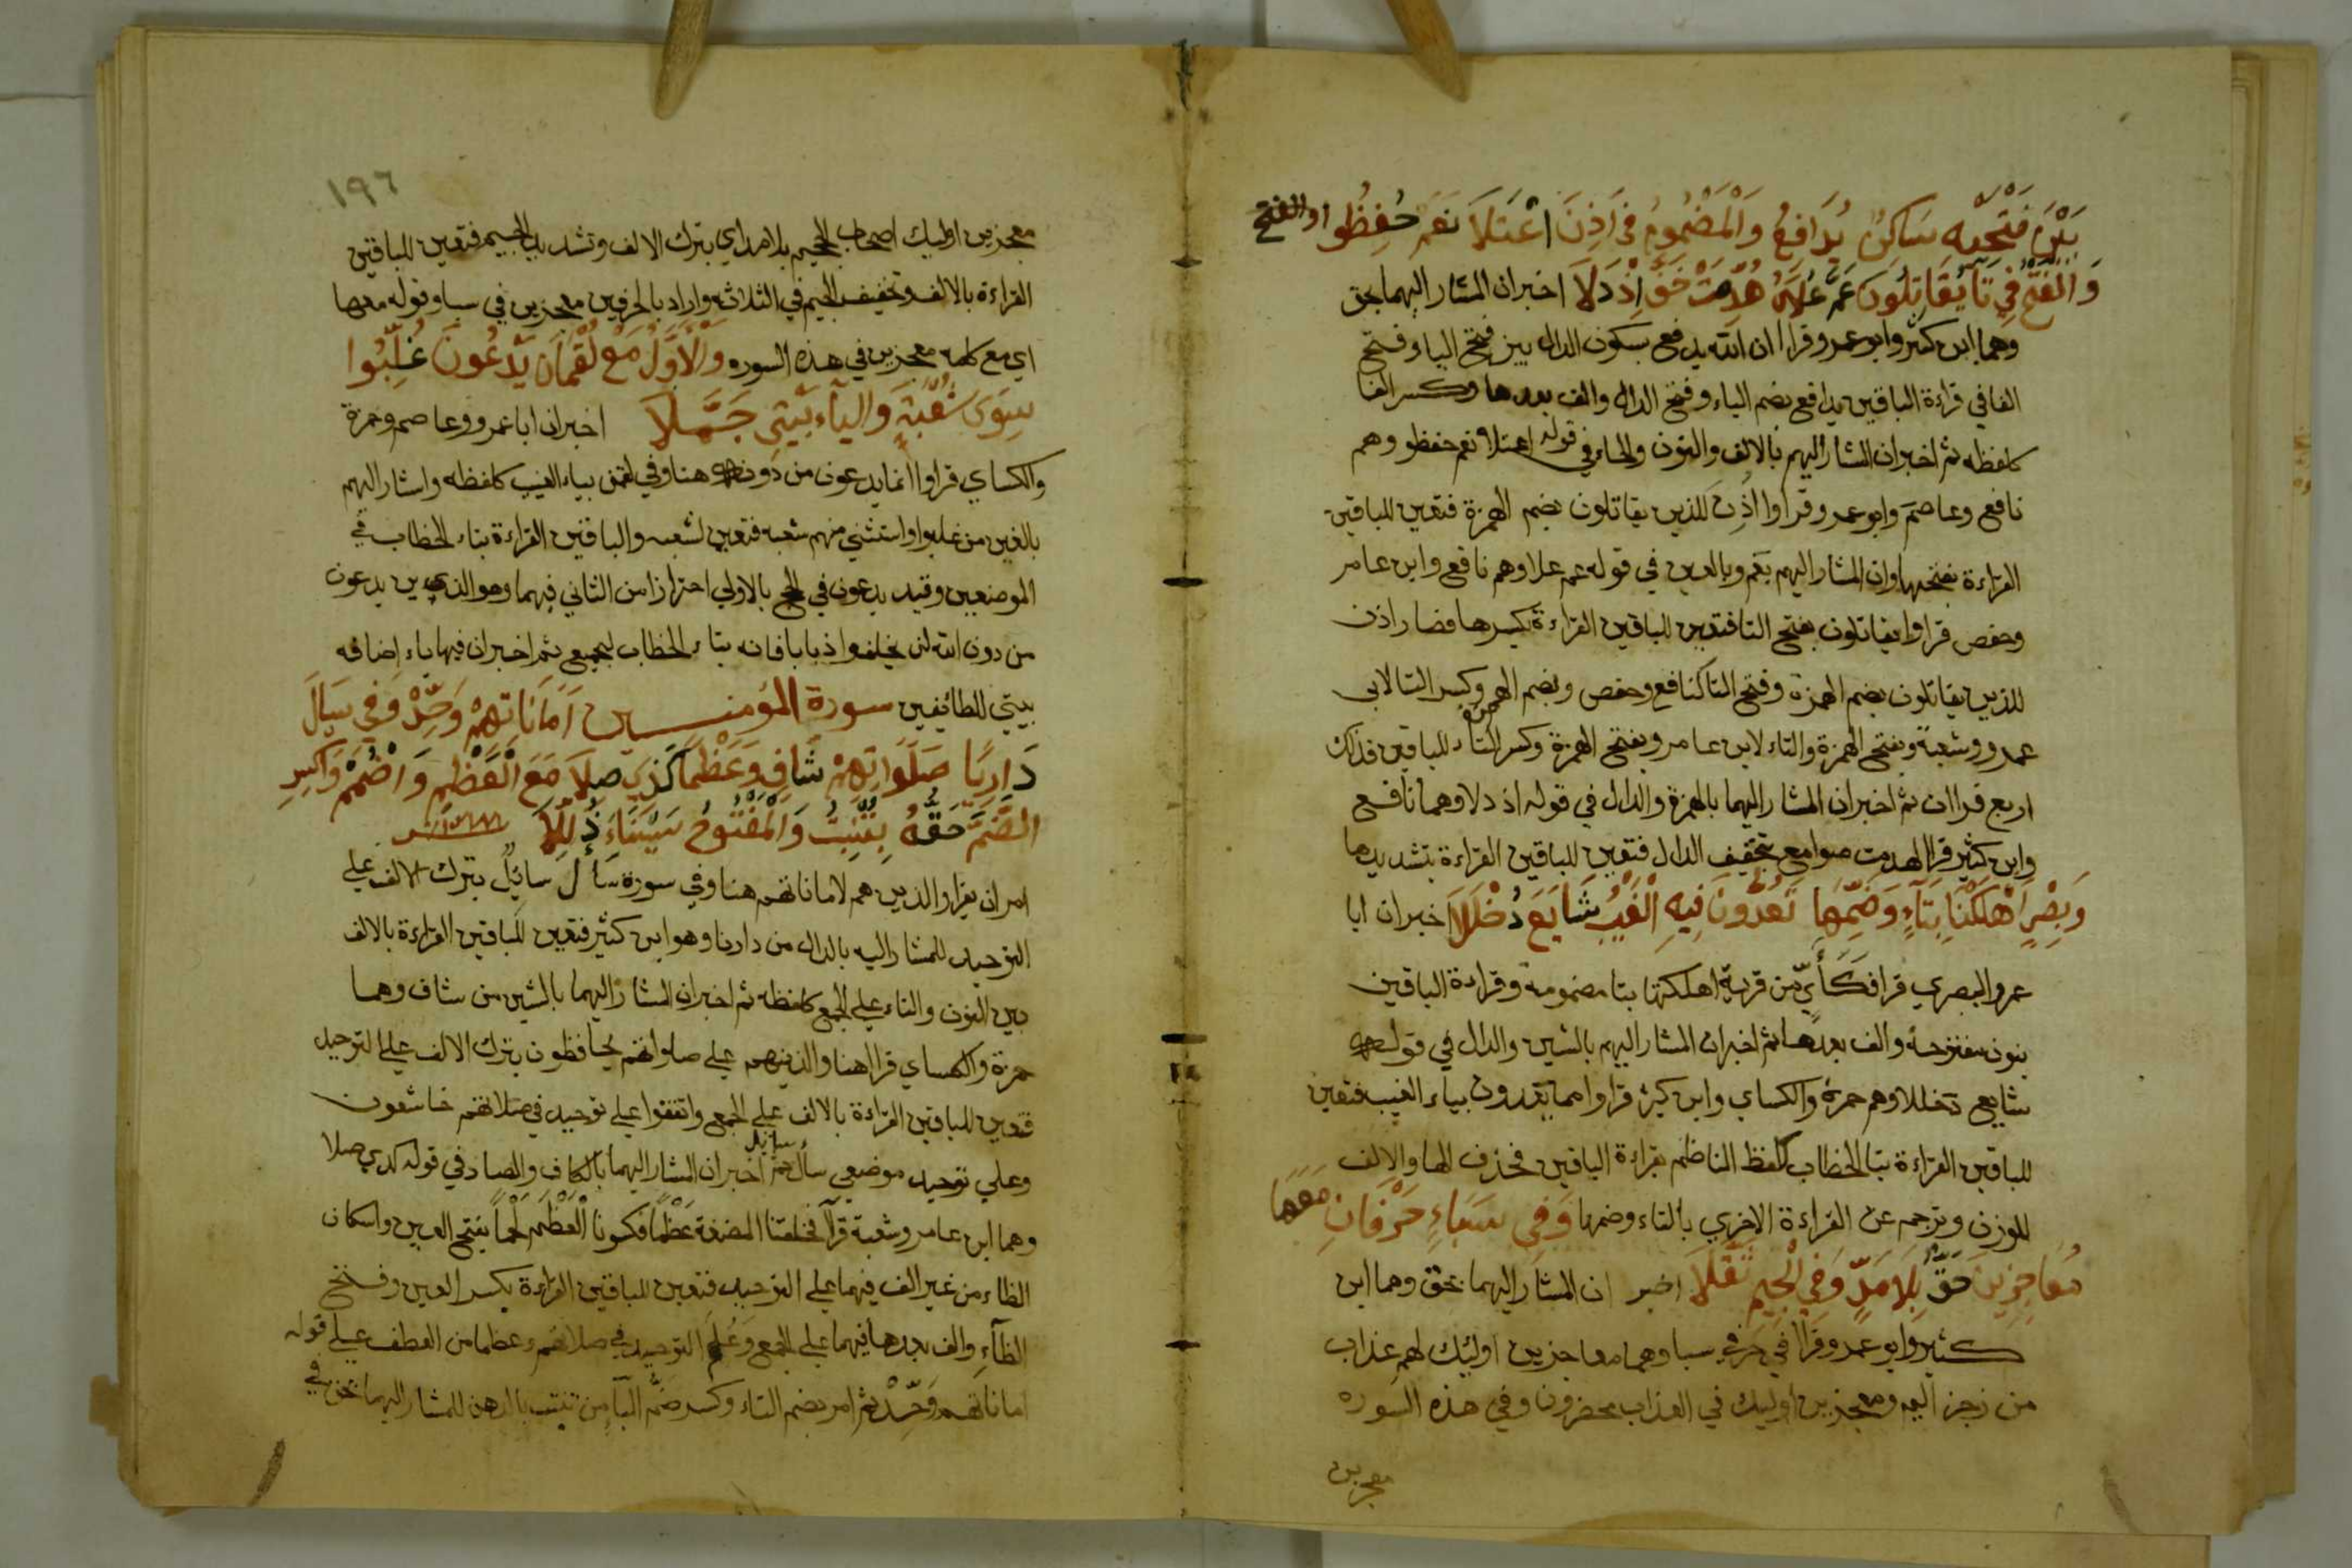 بَيْنَ فَتْحَيْهِ سَاكِنٌ يُدَافِعُ وَالْمَضْمُومُ فِي أَذِنَ اعْتَلَا نَعَمْ حُفِظُوا والفتح
وَالْفَتْحُ فِي تَا يُقَاتِلُونَ عَمَّ عُلَاهُ هُدِّمَتْ خَفَّ إِذْ دَلَا اخبر ان المشار اليهما بحق
وهما ابن كثير وابو عمرو قراا ان الله يدفع بسكون الدال بين فتح الياء وفتح
الفا في قراءة الباقين يدافع بضم الياء وفتح الدال والف بعدها وكسر الفا
كلفظه ثم اخبر ان المشار اليهم بالالف والنون والحاء في قوله اعتلا نعم حفظوا وهم
نافع وعاصم وابو عمرو قراوا اُذِن للذين يقاتلون بضم الهمزة فتعين للباقين
القراءة بفتحها وان المشار اليهم بعم وبالعين في قوله عم علاه وهم نافع وابن عامر
وحفص قراوا يقاتلون بفتح التا فتعين للباقين القراءة بكسرها فصار اذن
للذين يقاتلون بضم الهمزة وفتح التا لنافع وحفص وبضم الهمزة وكسر التا لابي
عمرو وشعبة وبفتح الهمزة والتاء لابن عامر وبفتح الهمزة وكسر التاء للباقين فذلك
اربع قراات ثم اخبر ان المشار اليهما بالهمزة والدال في قوله اذ دلا وهما نافع
وابن كثير قراا لهدمت صوامع بتخفيف الدال فتعين للباقين القراءة بتشديدها
وَبَصْرٍ أَهْلَكْنَا بِتَاءٍ وَضَمِّهَا تَعُدُّونَ فِيهِ الْغَيْبُ شَايَعَ دُخْلَلَا اخبر ان ابا
عمرو البصري قرا فكأيّ من قرية اهلكتها بتا مضمومة وقراءة الباقين
بنون مفتوحة والف بعدها ثم اخبر ان المشار اليهم بالشين والدال في قوله
شايع دخللا وهم حمزة والكساي وابن كثير قراوا مما يعدون بياء الغيب فتعين
للباقين القراءة بتا الخطاب كلفظ الناظم بقراءة الباقين فحذف الها والالف
للوزن وترجم عن القراءة الاخري بالتاء وضمها وَفِي سَبَاءٍ حَرْفَانِ مَعَهَا
مُعَاجِزِينَ حَقٌّ بِلَا مَدٍّ وَفِي الْجِيمِ ثَقَّلَا اخبر ان المشار اليهما بحق وهما ابن
كثير وابو عمرو قراا في حرفي سبا وهما معاجزين اوليك لهم عذاب
من رجز اليم ومعجزين اوليك في العذاب محضرون وفي هذه السوره
معجزين
١٩٦
معجزين اوليك اصحاب الجحيم بلا مد اي بترك الالف وتشديد الجيم فتعين للباقين
القراءة بالالف وتخفيف الجيم في الثلاثه واراد بالحرفين معجزين في سبا وقوله معها
اي مع كلمة معجزين في هذه السوره وَالْأَوَّلُ مَعْ لُقْمَانَ يَدْعُونَ غَلَّبُوا
سِوَى شُعْبَةٍ وَالْيَاءُ بَيْتِيَ جَمَّلَا اخبر ان ابا عمرو وعاصم وحمزة
والكساي قراوا انما يدعون من دونه هنا وفي لقمن بياء الغيب كلفظه واشار اليهم
بالغين من غلبوا واستثني منهم شعبه فتعين لشعبه والباقين القراءة بتاء الخطاب في
الموضعين وقيد يدعون في الحج بالاولي احترازا من الثاني فيهما وهو الذين يدعون
من دون الله لن يخلقوا ذبابا فانه بتاء الخطاب لجميع ثم اخبر ان فيها ياء اضافه
بيتي للطائفين سورة المؤمنين أَمَانَاتِهِمْ وَحِّدْ وَفِي سَالَ
دَارِيًا صَلَوَاتِهِمْ شَافٍ وَعَظْمًا كَذِي صِلَا مَعَ الْعَظْمِ وَاضْمُمْ وَاكْسِرِ
الضَّمَّ حَقُّهُ بِتَنْبُتُ وَالْمَفْتُوحُ سِينَاءَ ذُلِّلَا
امر ان يقرا والذين هم لاماناتهم هنا وفي سورة سأل سائل بترك الالف علي
التوحيد للمشار اليه بالدال من داريا وهو ابن كثير فتعين للباقين القراءة بالالف
بين النون والتاء علي الجمع كلفظه ثم اخبر ان المشار اليهما بالشين من شاف وهما
حمزة والكساي قراا هنا والذين هم علي صلواتهم يحافظون بترك الالف علي التوحيد
فتعين للباقين القراءة بالالف علي الجمع واتفقوا علي توحيد في صلاتهم خاشعون
وعلي توحيد موضعي سأل سايل ثم اخبر ان المشار اليهما بالكاف والصاد في قوله كذي صلا
وهما ابن عامر وشعبة قرآ فخلقنا المضغة عَظْمًا فكسونا الْعَظْمَ لَحْمًا بفتح العين واسكان
الظاء من غير الف فيهما علي التوحيد فتعين للباقين القراءة بكسر العين وفتح
الظاءِ والف بعدها فيهما علي الجمع وَعُلِمَ التوحيد في صلاتهم وعظما من العطف علي قوله
اماناتهم وَحِّدْ ثم امر بضم التاء وكسر ضَمِّ البآء من تنبت بالدهن للمشار اليهما بحق في